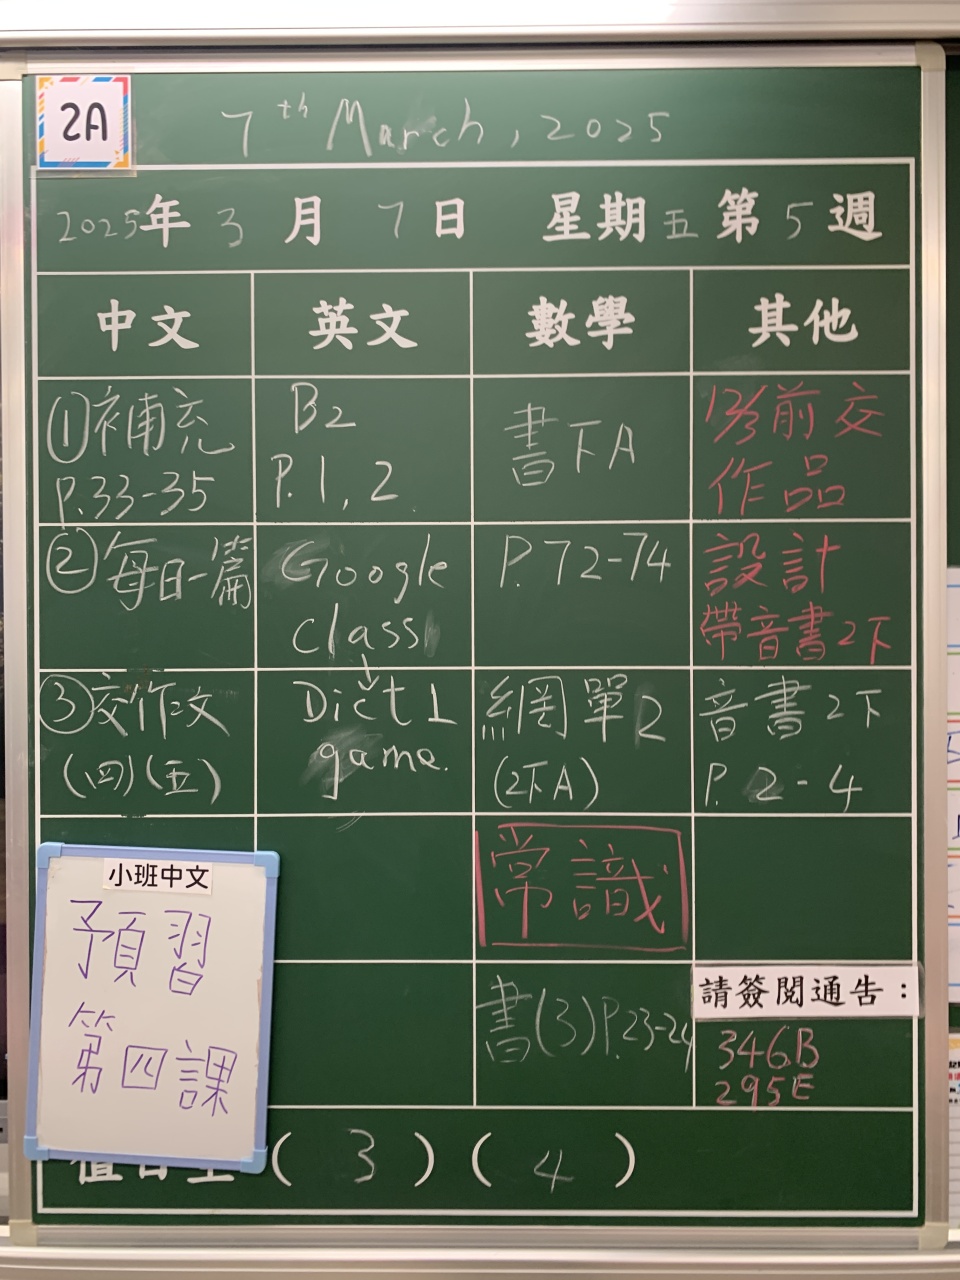 2A
7th March, 2025
2025年 3 月 7 日 星期五第 5 週
中文 英文 數學 其他
①補充
P.33-35
B2
P.1, 2
書下A
12/3前交
作品
②每日一篇
Google
class
P.72-74
設計
帶音書2下
③交作文
(四)(五)
Dict 1
game.
網單2
(2下A)
音書2下
P. 2-4
常識
小班中文
預習
第四課
書(3)P.23-24
請簽閱通告：
346B
295E
( 3 ) ( 4 )